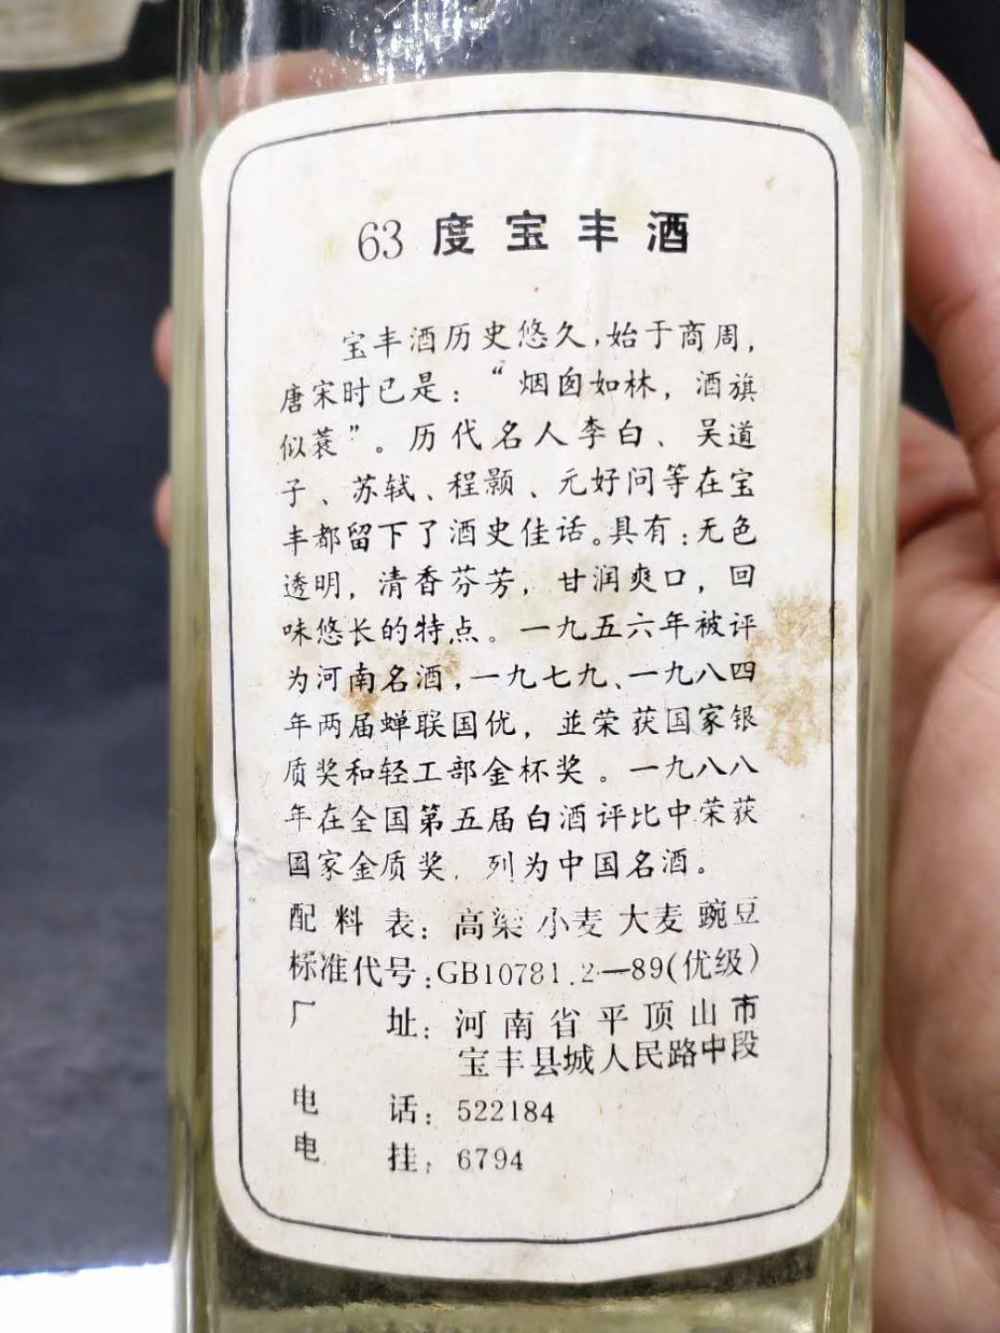 63度宝丰酒
宝丰酒历史悠久,始于商周,
唐宋时已是:“烟囱如林,酒旗
似蓑”。历代名人李白、吴道
子、苏轼、程颢、元好问等在宝
丰都留下了酒史佳话。具有:无色
透明,清香芬芳,甘润爽口,回
味悠长的特点。一九五六年被评
为河南名酒,一九七九、一九八四
年两届蝉联国优,並荣获国家银
质奖和轻工部金杯奖。一九八八
年在全国第五届白酒评比中荣获
国家金质奖.列为中国名酒。
配料表:高粱 小麦 大麦 豌豆
标准代号:GB10781.2—89(优级)
厂址:河南省平顶山市
宝丰县城人民路中段
电话:522184
电挂:6794